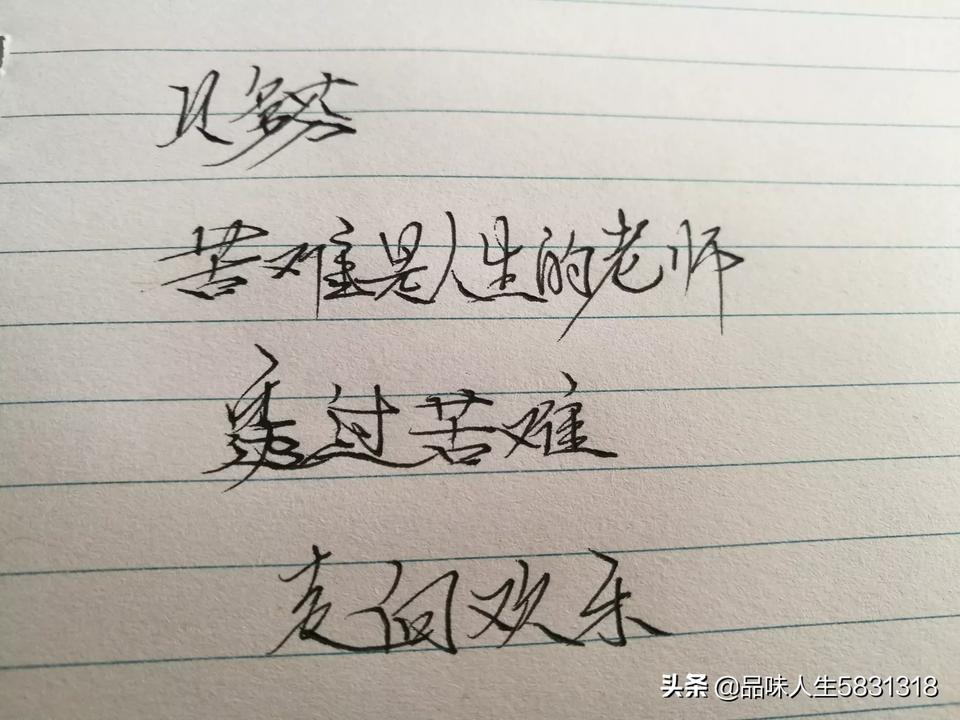 贝多芬
苦难是人生的老师
透过苦难
走向欢乐
头条 @品味人生5831318